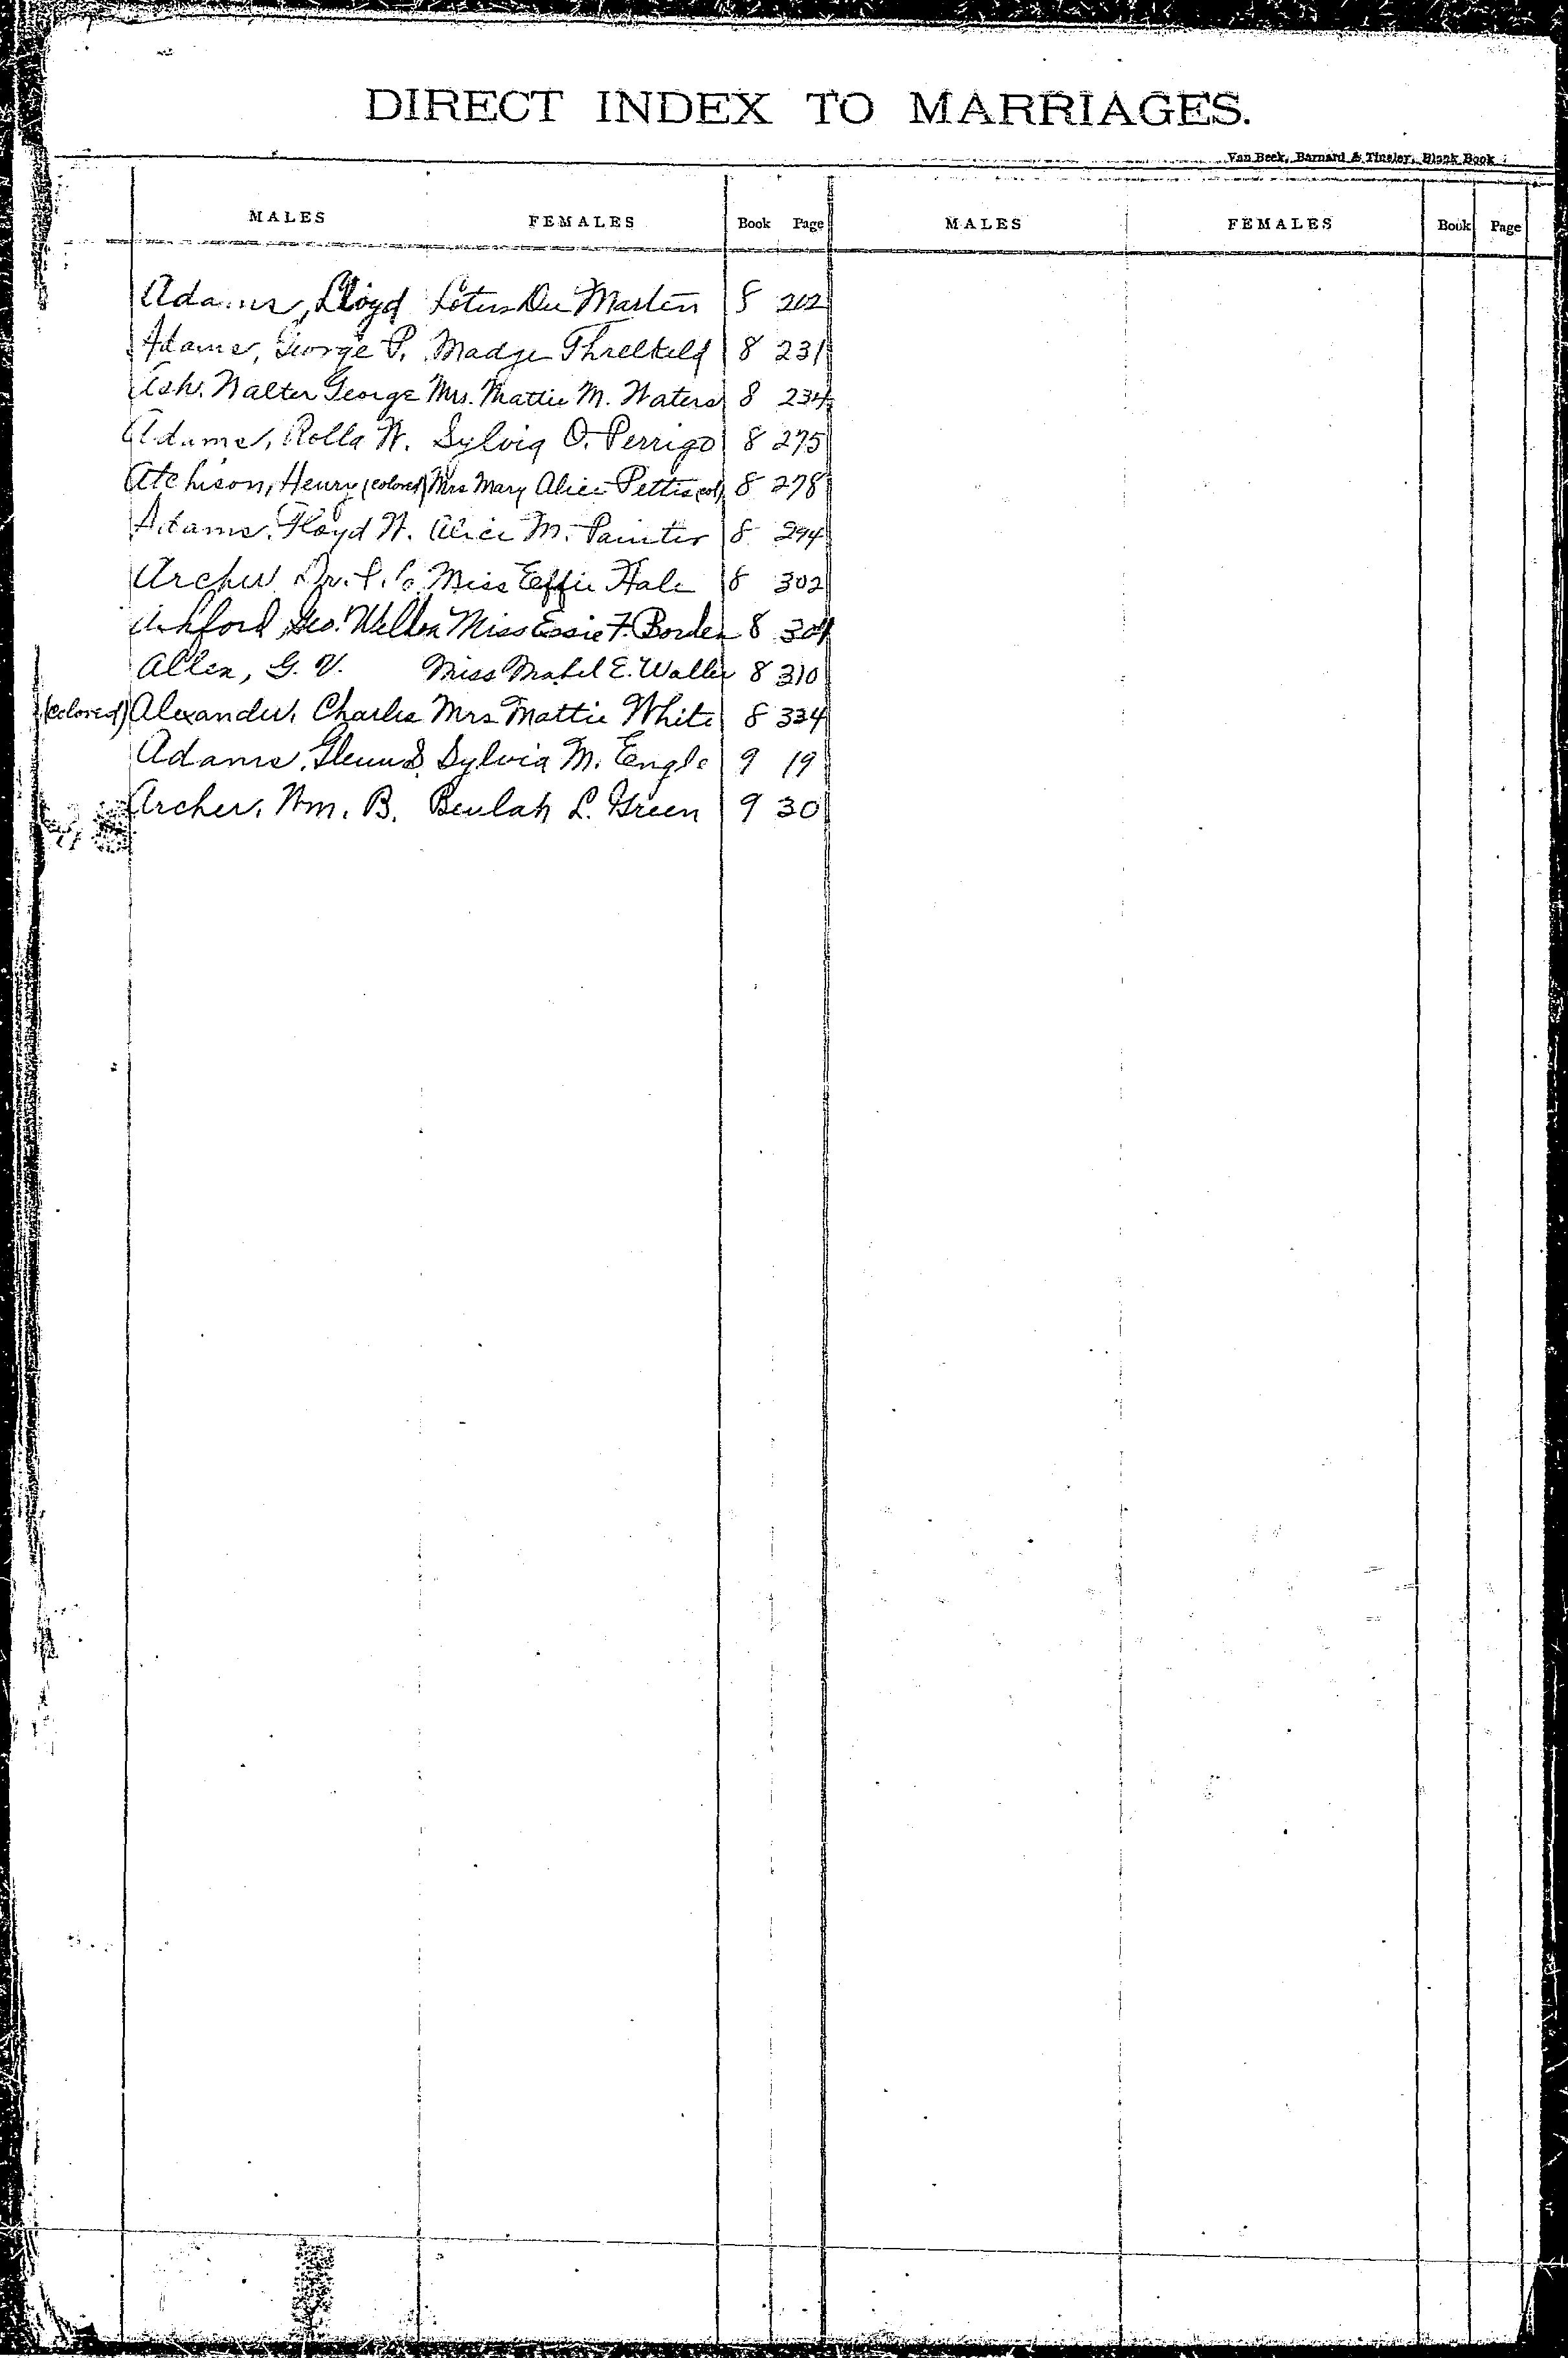 DIRECT INDEX TO MARRIAGES.
Van Beek, Barnard & Tinsley, Blank Book
MALES FEMALES Book Page MALES FEMALES Book Page
Adams, Lloyd Lotus Martin 8 202
Adams, George P. Madge Threlkeld 8 231
Ash, Walter George Mrs. Mattie M. Waters 8 234
Adams, Rolla W. Sylvia O. Perrigo 8 275
Atchison, Henry (colored) Mrs Mary Alice Pettis (col) 8 278
Adams, Floyd W. Alice M. Painter 8 294
Archer Dr. Miss Effie Hale 8 302
Ashford, Geo. Weldon Miss Essie F. Borden 8
Allen, G. V. Miss Mabel E. Waller 8 310
(colored) Alexander, Charles Mrs Mattie White 8 334
Adams, Glenn S. Sylvia M. Engle 9 19
Archer, Wm. B. Beulah L. Green 9 30